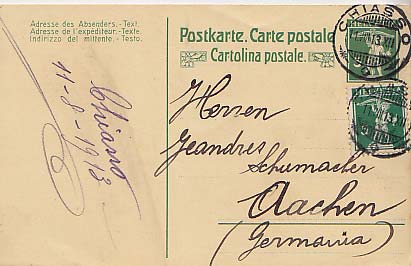 Adresse des Absenders. - Text.
Adresse de l'expéditeur. - Texte.
Indirizzo del mittente. - Testo.
Postkarte. Carte postale
Cartolina postale.
CHIASSO
Chiasso
11-8-1913
Herren
Jeandres
Schumacher
Aachen
(Germania)